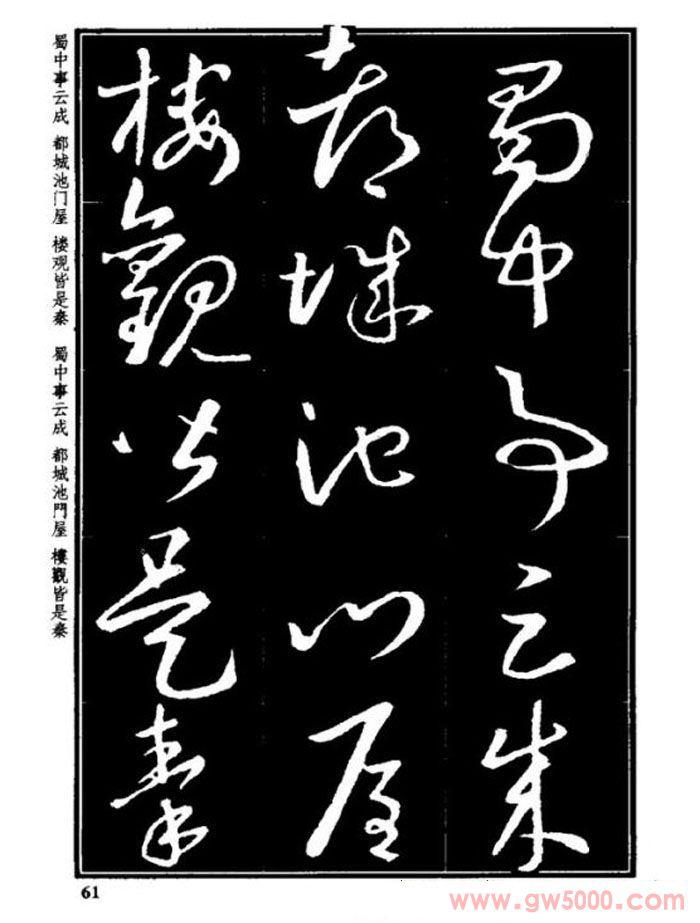 蜀中事云成
都城池門屋
樓觀皆是秦
蜀中事云成 都城池门屋 楼观皆是秦 蜀中事云成 都城池門屋 樓觀皆是秦
61
www.gw5000.com